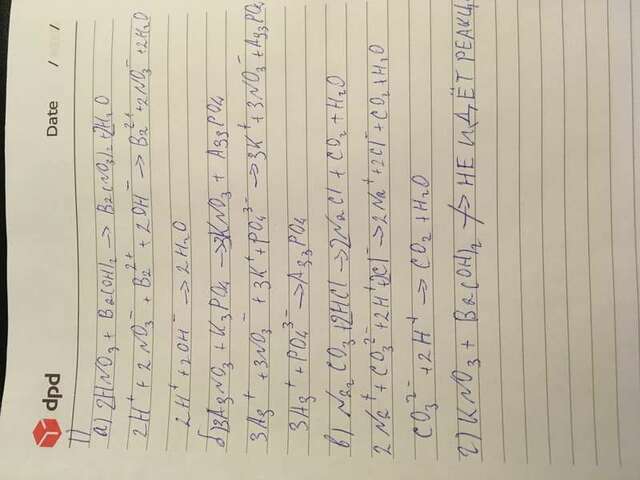 dpd
Date / /
1)
а) 2HNO3 + Ba(OH)2 → Ba(NO3)2 + 2H2O
2H⁺ + 2NO3⁻ + Ba²⁺ + 2OH⁻ → Ba²⁺ + 2NO3⁻ + 2H2O
2H⁺ + 2OH⁻ → 2H2O
б) 3AgNO3 + K3PO4 → 3KNO3 + Ag3PO4
3Ag⁺ + 3NO3⁻ + 3K⁺ + PO4³⁻ → 3K⁺ + 3NO3⁻ + Ag3PO4
3Ag⁺ + PO4³⁻ → Ag3PO4
в) Na2CO3 + 2HCl → 2NaCl + CO2 + H2O
2Na⁺ + CO3²⁻ + 2H⁺ + 2Cl⁻ → 2Na⁺ + 2Cl⁻ + CO2 + H2O
CO3²⁻ + 2H⁺ → CO2 + H2O
г) KNO3 + Ba(OH)2 ↛ НЕ ИДЁТ РЕАКЦ